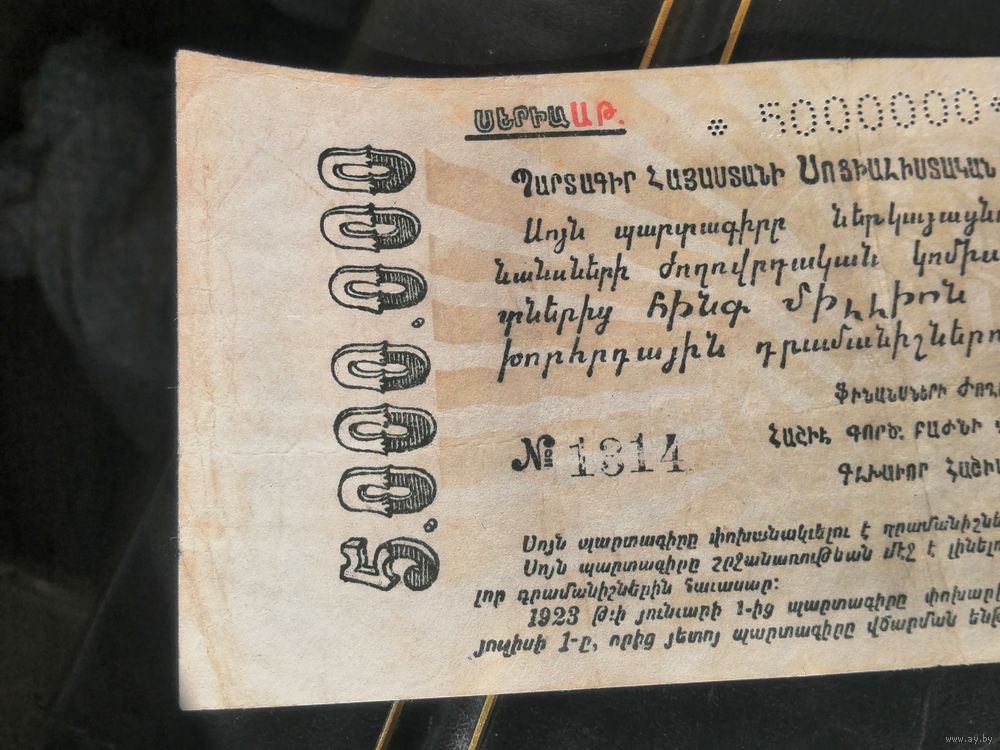 ՍԵՐԻԱ ԱԹ.
* 5000000
ՊԱՐՏԱԳԻՐ ՀԱՅԱՍՏԱՆԻ ՍՈՑԻԱԼԻՍՏԱԿԱՆ
Սոյն պարտագիրը ներկայացնե
նանսների ժողովրդական կոմիս
տներից հինգ միլլիոն
խորհրդային դրամանիշներո
ՖԻՆԱՆՍՆԵՐԻ ԺՈՂ
ՀԱՇԻՒ ԳՈՐԾ. ԲԱԺՆԻ
ԳԼԽԱՒՈՐ ՀԱՇԻՒ
№ 1314
Սոյն պարտագիրը փոխանակւելու է դրամանիշնե
Սոյն պարտագիրը շրջանառութեան մէջ է լինելո
լոր դրամանիշներին հաւասար:
1923 թ:ի յունւարի 1-ից պարտագիրը փոխարի
յուլիսի 1-ը, որից յետոյ պարտագիրը վճարման ենթ
5.000.000
www.ay.by